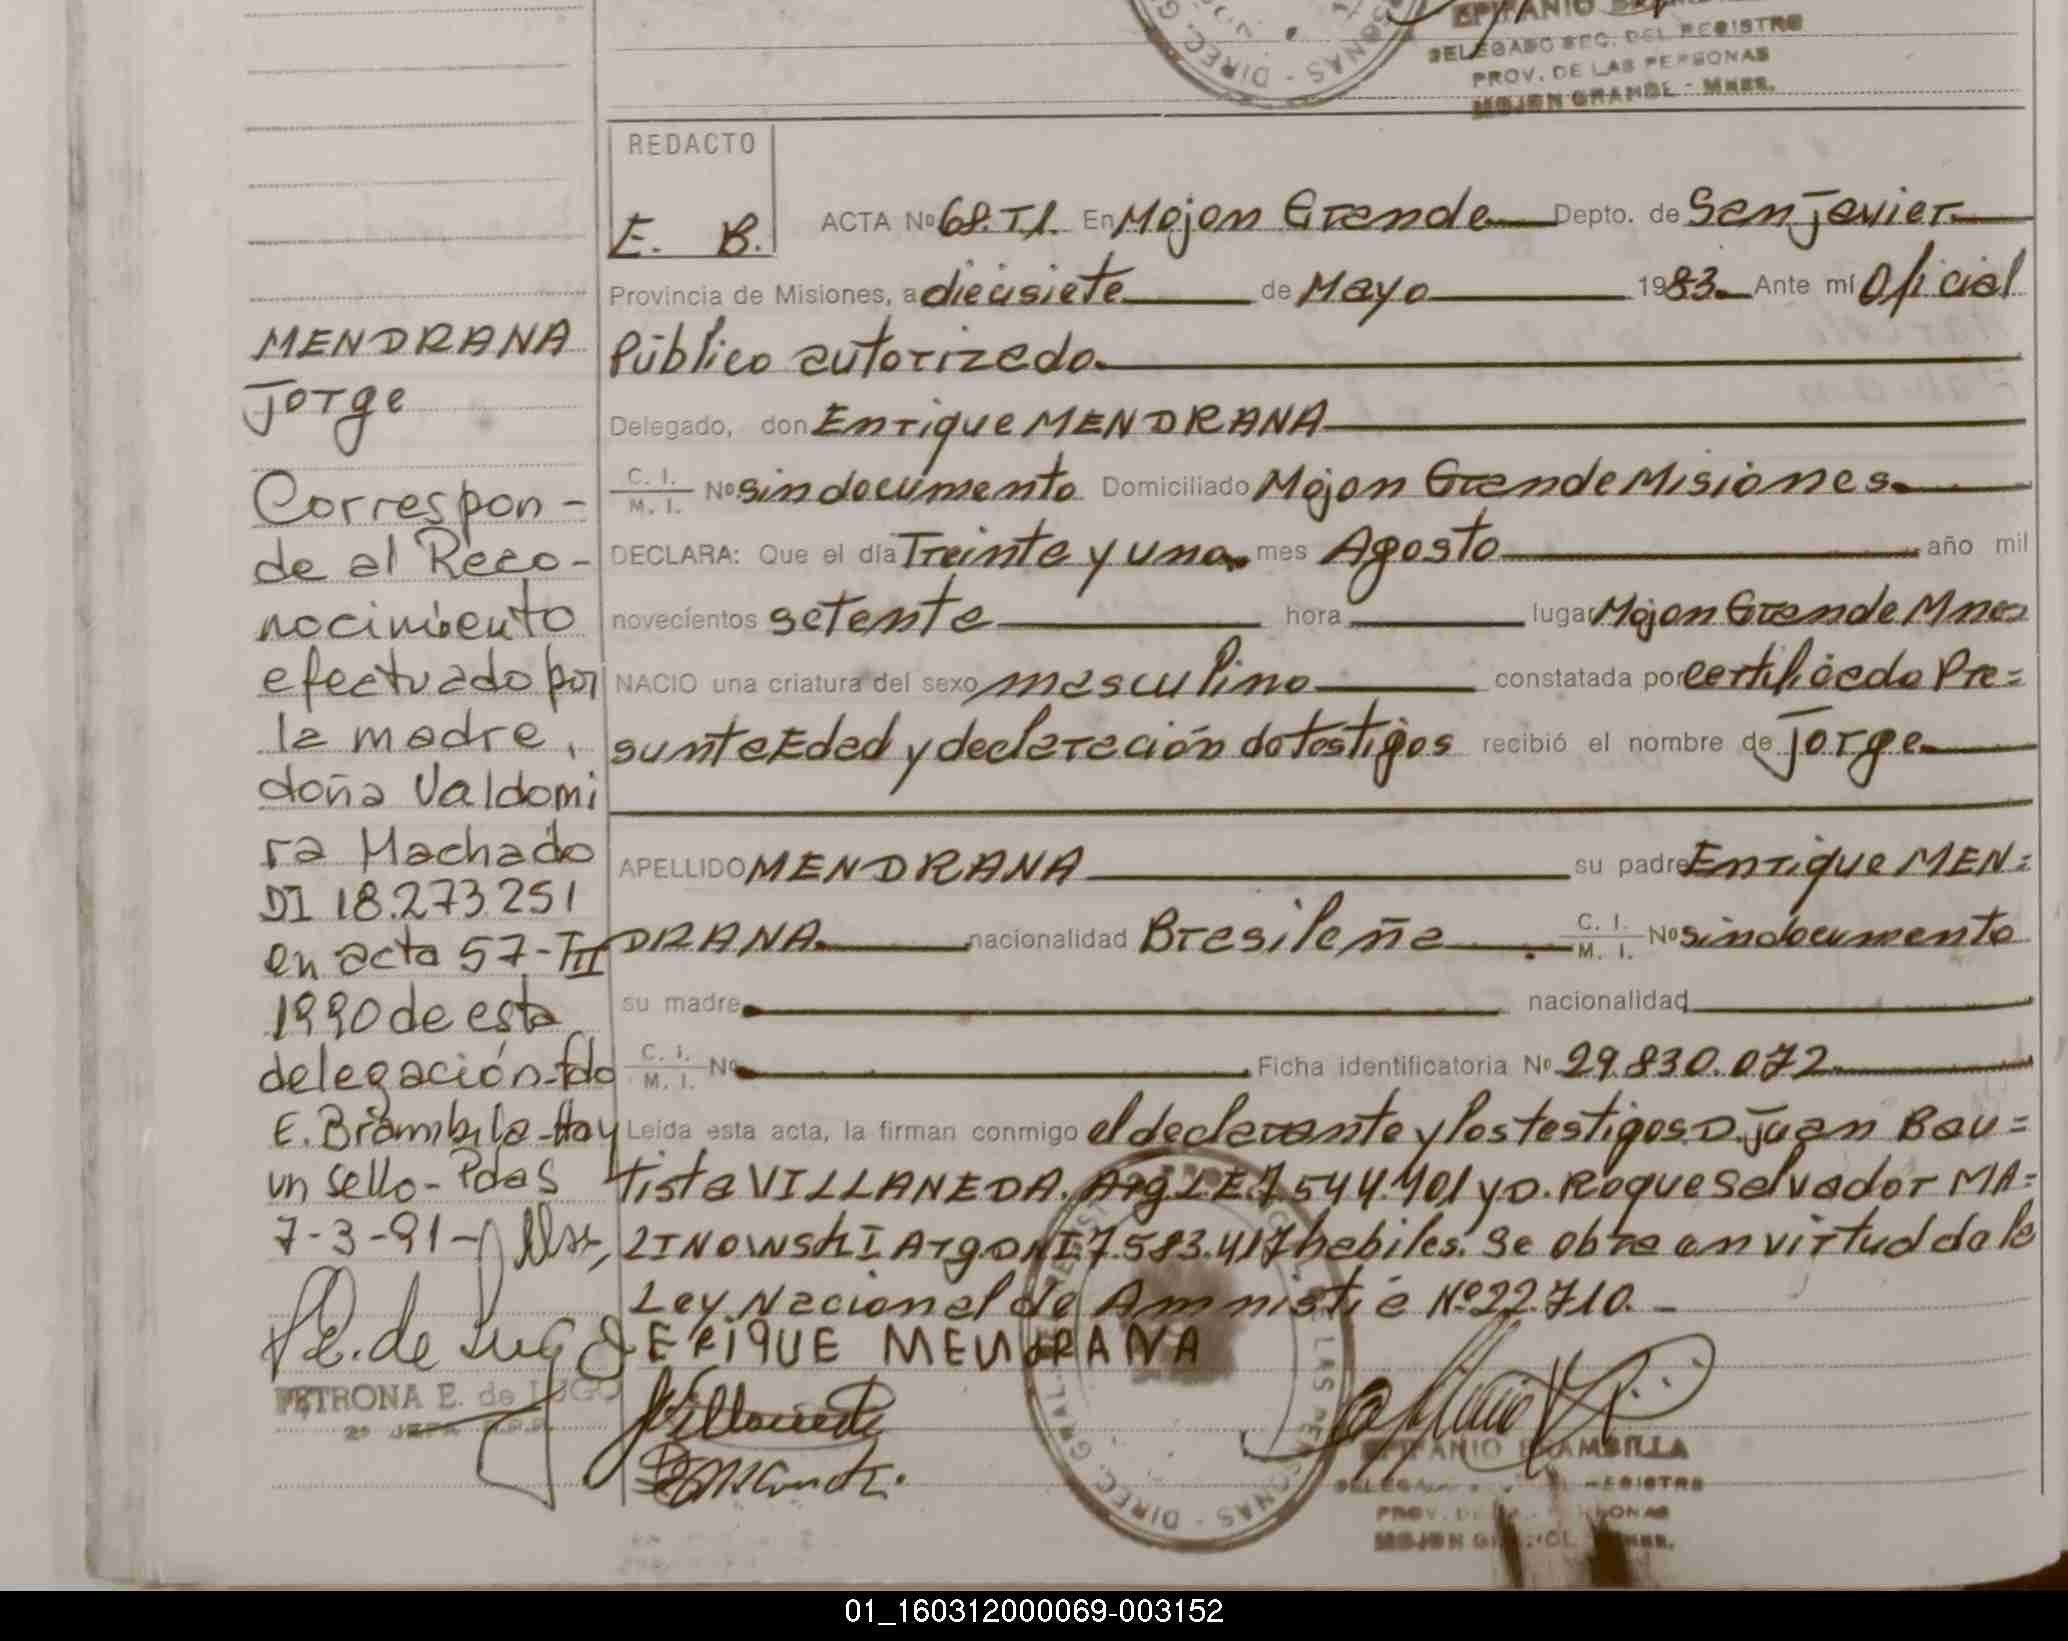 DELEGADO SEC. DEL REGISTRO
PROV. DE LAS PERSONAS
MOJON GRANDE - MNES.
REDACTO
E. B.
ACTA Nº 68. T I. En Mojon Grande Depto. de San Javier
Provincia de Misiones, a diecisiete de Mayo 1983. Ante mí Oficial
Público autorizado.
Delegado, don Enrique MENDRANA
C. I. / M. I. Nº sin documento Domiciliado Mojon Grande Misiones.
DECLARA: Que el día Treinta y uno. mes Agosto año mil
novecientos setenta hora lugar Mojon Grande Mnes
NACIO una criatura del sexo masculino constatada por certificado Pre=
sunta Edad y declaración de testigos recibió el nombre de Jorge.
APELLIDO MENDRANA su padre Enrique MEN=
DRANA. nacionalidad Brasileña C. I. / M. I. Nº sin documento
su madre nacionalidad
C. I. / M. I. Nº Ficha identificatoria Nº 29.830.072.
Leída esta acta, la firman conmigo el declarante y los testigos D. Juan Bau=
tista VILLANEDA. Arg LE. 7 544.401 y D. Roque Salvador MA=
LINOWSKI Arg DNI. 7.583.417 habiles. Se obra en virtud de la
Ley Nacional de Amnistía Nº 22.710. -
ERIQUE MENDRANA
EPIFANIO BRAMBILLA
MENDRANA
Jorge
Correspon-
de al Reco-
nocimiento
efectuado por
la madre,
doña Valdomi
ra Machado
DI 18.273.251
en acta 57-TII
1990 de esta
delegación-fdo
E. Brambila-Hay
un sello-Pdas
7-3-91-
PETRONA E. de LUGO
01_160312000069-003152